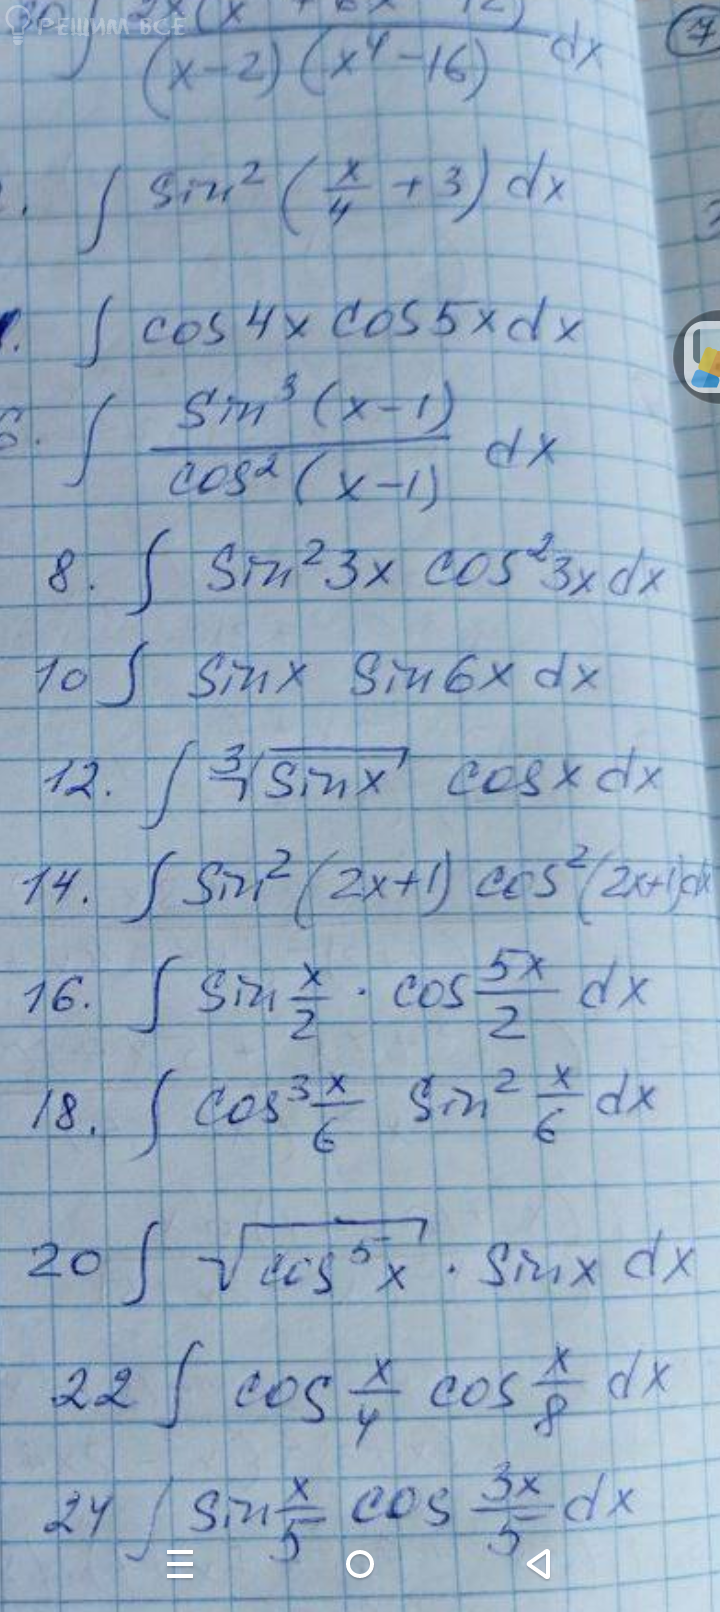 РЕШИМ ВСЕ
∫ dx
(x-2)(x⁴-16)
7
. ∫ sin² (x/4 + 3) dx
. ∫ cos4x cos5x dx
6. ∫ sin³(x-1)/cos²(x-1) dx
8. ∫ sin²3x cos²3x dx
10 ∫ sinx sin6x dx
12. ∫ ³√sinx cosx dx
14. ∫ sin²(2x+1) cos²(2x+1)dx
16. ∫ sin x/2 · cos 5x/2 dx
18. ∫ cos³ x/6 sin² x/6 dx
20 ∫ √cos⁵x · sinx dx
22 ∫ cos x/4 cos x/8 dx
24 ∫ sin x/5 cos 3x/5 dx